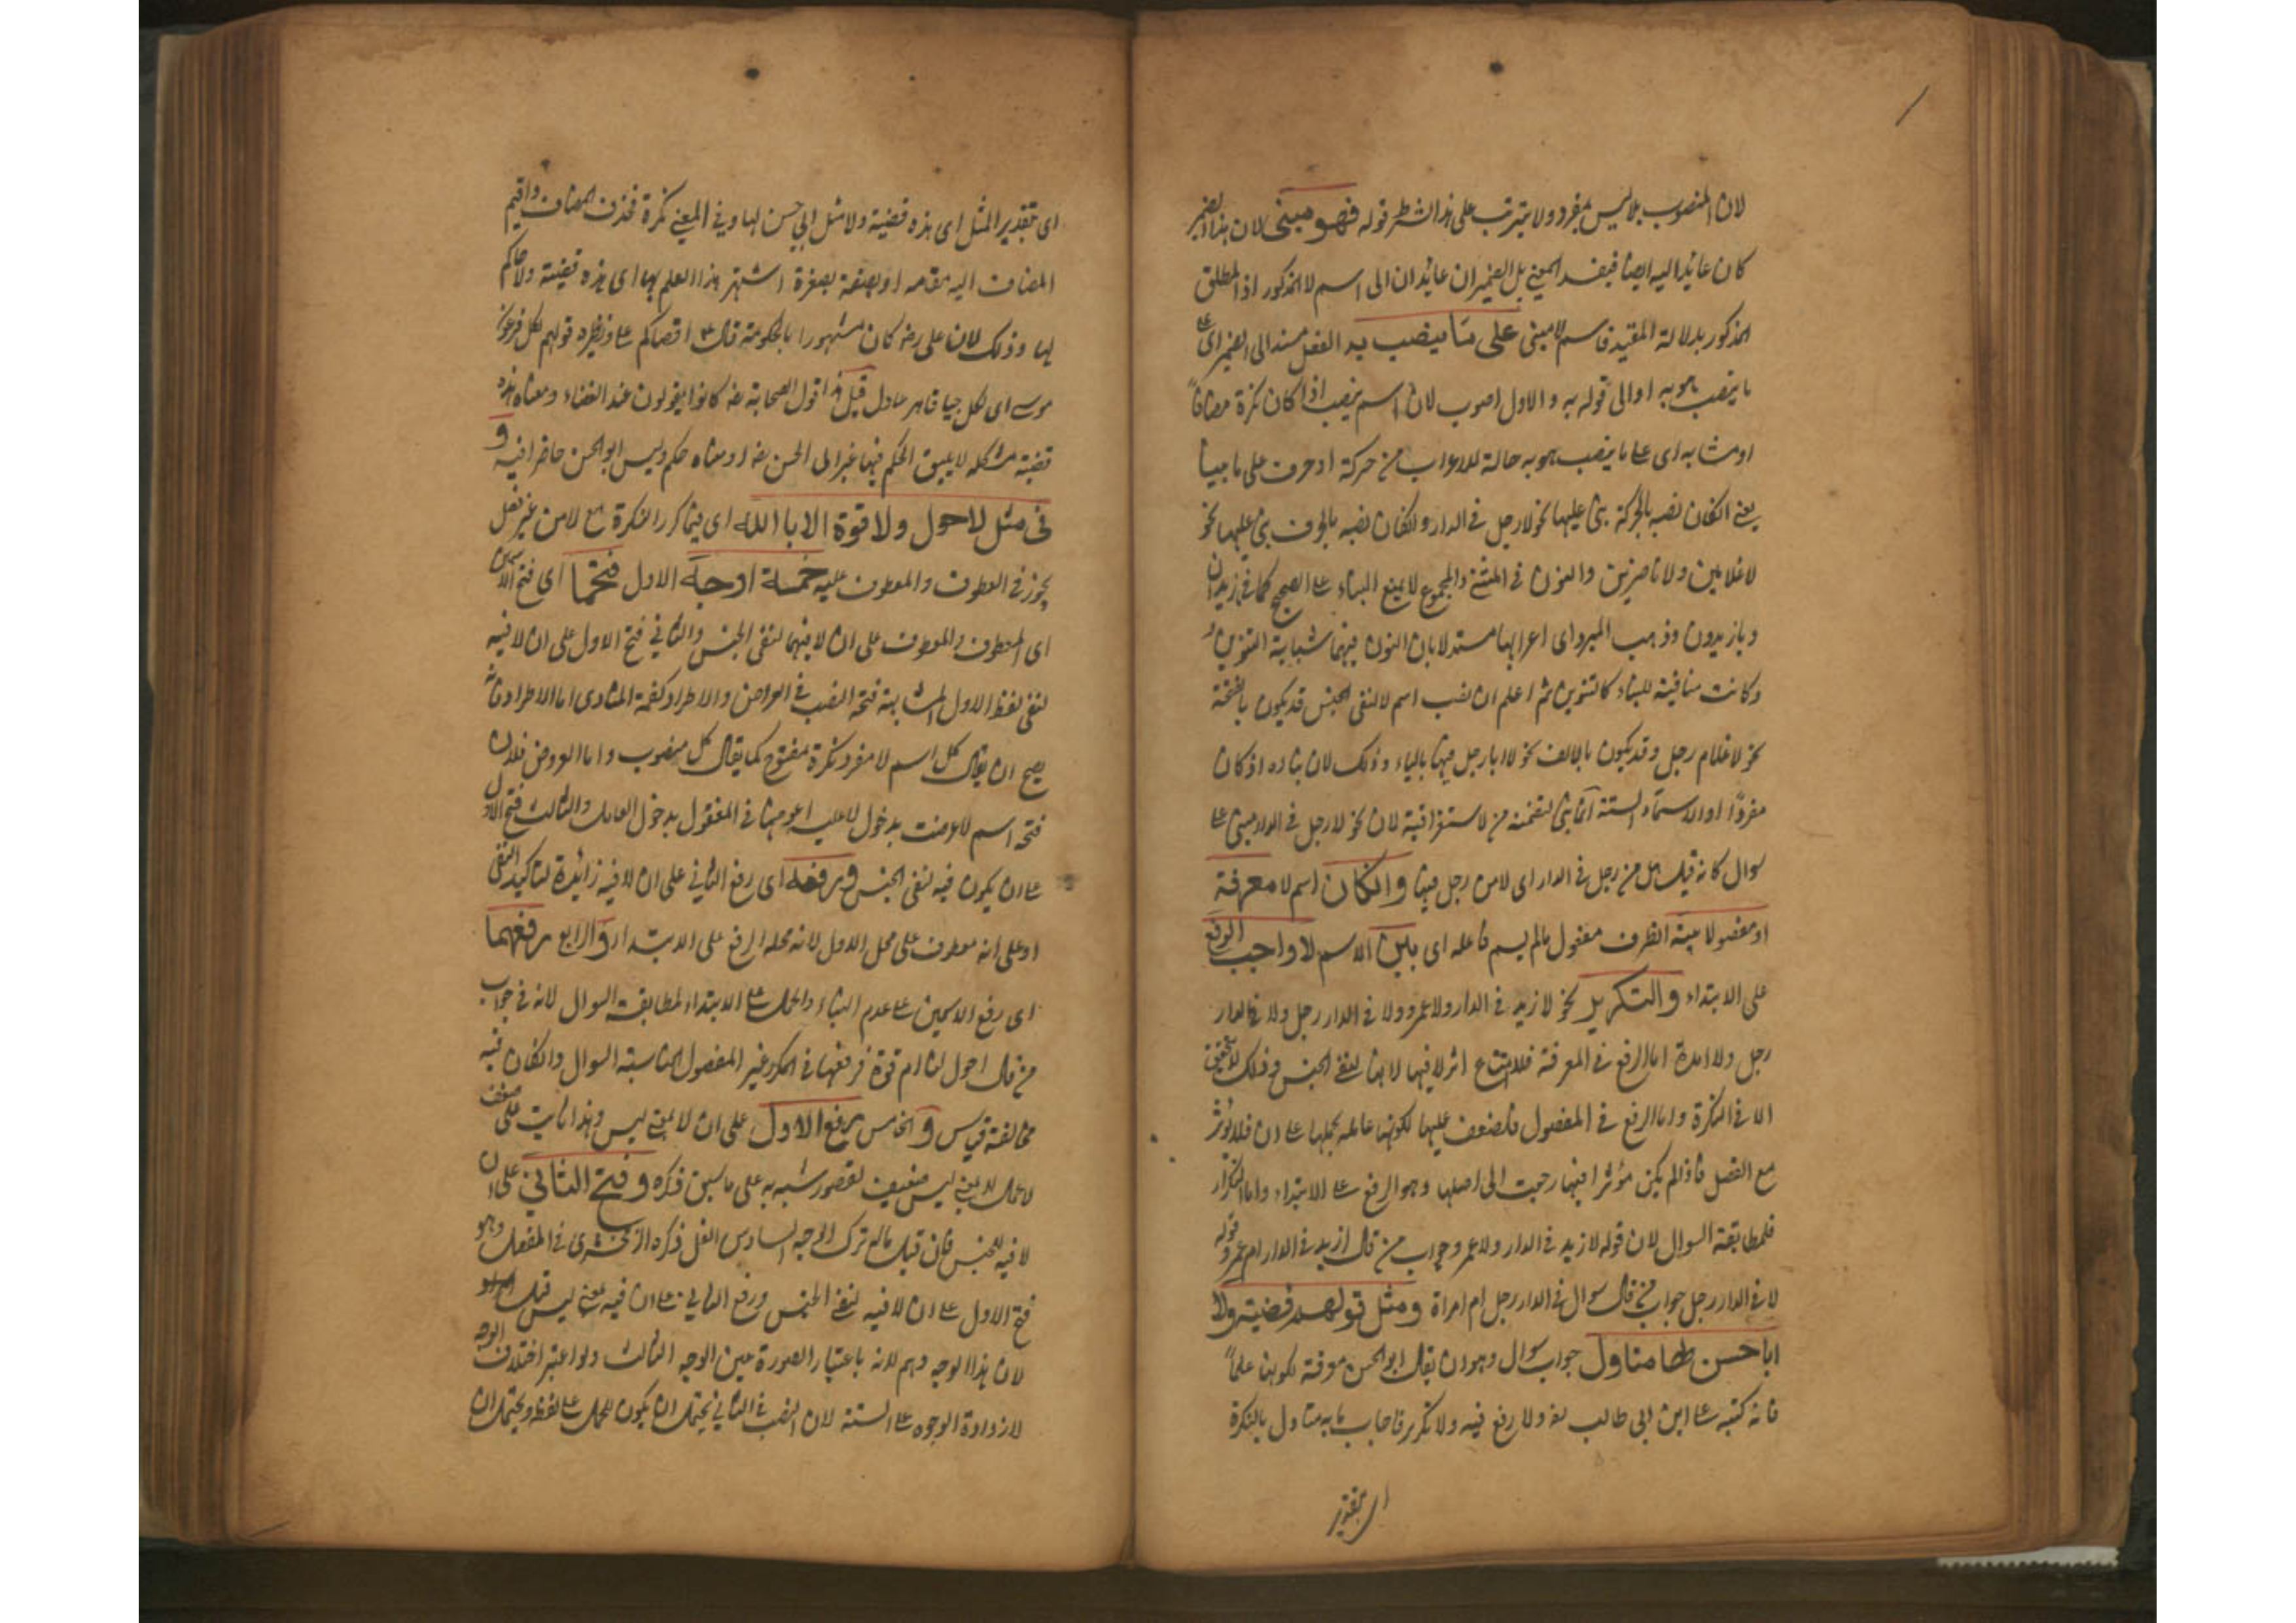 لان المنصوب بلا ليس بمفرد ولا يترتب على هذا الشرط قوله فهو مبنى لان هذا الضمير
كان عائدا اليه ايضا فيفسد المعنى بل الضميران عائدان الى اسم لا المذكور اذ المطلق
المذكور بدلالة المقيد فاسم لا مبنى على ما ينصب به الفعل مسند الى الضمير اى على
ما ينصب هو به او الى قوله به والاول اصوب لان اسم ينصب اذا كان نكرة مضافا
او مشابه اى على ما ينصب هو به حالة للاعراب من حركة او حرف على ما
يعنى انكان نصبه بالحركة بنى عليها نحو لا رجل فى الدار وانكان نصبه بالحرف بنى عليها نحو
لا غلامين ولا ناصرين والنون فى المثنى والمجموع لا يمنع البناء على الصحيح كما فى يا زيدان
ويا زيدون وذهب المبرد اى اعرابها مستدلا بان النون فيهما شبابهة التنوين
وكانت منافية للبناء كالتنوين ثم اعلم ان نصب اسم لا لنفى الجنس قد يكون بالفتحة
نحو لا غلام رجل وقد يكون بالالف نحو لا ابا رجل فيها بالياء وذلك لان بناءه اذ كان
مفردا او الاسماء الستة انما بنى لتضمنه من لاستغراقية لان نحو لا رجل فى الدار مبنى على
سوال كانه قيل هل من رجل فى الدار اى لا من رجل فيها وانكان اسم لا معرفة
او مفصولا بينه الظرف مفعول مالم يسم فاعله اى بين الاسم لا واجب الرفع
على الابتداء والتكرير نحو لا زيد فى الدار ولا عمرو ولا فى الدار رجل ولا فى الدار
رجل ولا امراة اما الرفع فى المعرفة فلامتناع اثر لا فيها لانها لنفى الجنس وذلك لا يتحقق
الا فى النكرة واما الرفع فى المفصول فلضعف عليها لكونها عاملة بحملها على ان فلا يؤثر
مع الفصل فاذا لم يكن مؤثرا فيها رجعت الى اصلها وهو الرفع على الابتداء واما التكرار
فلمطابقة السوال لان قوله لا زيد فى الدار ولا عمرو جواب من قال ازيد فى الدار ام عمرو وقوله
لا فى الدار رجل جواب من قال سوال فى الدار رجل ام امراة ومثل قولهم قضية ولا
ابا حسن لها متاول جواب سوال وهو ان يقال ابو الحسن معرفة لكونها علما
فانه كنية على ابن ابى طالب رضه ولا رفع فيه ولا تكرير فاجاب بانه متاول بالنكرة
اى بتقدير
اى بتقدير المثل اى هذه قضية ولا مثل ابى حسن لها وفى المعنى نكرة فحذف المضاف واقيم
المضاف اليه مقامه او بصفة اشتهر هذا العلم بها اى هذه قضية ولا حاكم
لها وذلك لان على رضه كان مشهورا بالحكومة قال ع م اقضاكم على ونظيره قولهم لكل فرعون
موسى اى لكل جبار قاهر عادل قيل هذا قول الصحابة رضه كانوا يقولون عند القضاء ومعناه هذه
قضية مشكلة لا يليق الحكم فيها غير ابى الحسن رضه او معناه حكم وليس ابو الحسن حاضرا فيه و
فى مثل لا حول ولا قوة الا بالله اى فيما كرر النكرة مع لا من غير فصل
يجوز فى المعطوف والمعطوف عليه خمسة اوجه الاول فتحهما اى فتح الاسمين
اى المعطوف والمعطوف على ان لا فيهما لنفى الجنس والثانى فتح الاول على ان لا فيه
لنفى لفظ الاول لمشابهة فتحة النصب فى العوارض والاطراد كضمة المنادى اما الاطراد فانه
يصح ان يقال كل اسم لا مفرد نكرة مفتوح كما يقال كل منصوب واما العروض فلان
فتحة اسم لا عرضت بدخول لا عليه عروضها فى المفعول بدخول العامل والثالث فتح الاول
على ان يكون فيه لنفى الجنس ورفعه اى رفع الثانى على ان لا فيه زائدة لتاكيد النفى
او على انه معطوف على محل الاول لانه محله الرفع على الابتداء والرابع رفعهما
اى رفع الاسمين على عدم البناء والحمل على الابتداء لمطابقة السوال لانه فى جواب
من قال احول لنا ام قوة فرفعها فى المكرر غير المفصول لمناسبة السوال وانكان فيه
مخالفة قياس والخامس رفع الاول على ان لا بمعنى ليس وهذا ثابت على ضعف
لا عمل لا بمعنى ليس ضعيف لقصور شبهه به على ما سبق ذكره وفتح الثانى على ان
لا فيه للجنس فان قيل ما له ترك الوجه السادس الذى ذكره الزمخشرى فى المفصل وهو
فتح الاول على ان لا فيه لنفى الجنس ورفع الثانى على ان فيه بمعنى ليس قيل
لان هذا الوجه وهم لانه باعتبار الصورة عين الوجه الثالث ولو اعتبر اختلاف الوجه
لازدادة الوجوه على الستة لان النصب فى الثانى يحتمل ان يكون للحمل على لفظ ويحتمل ان